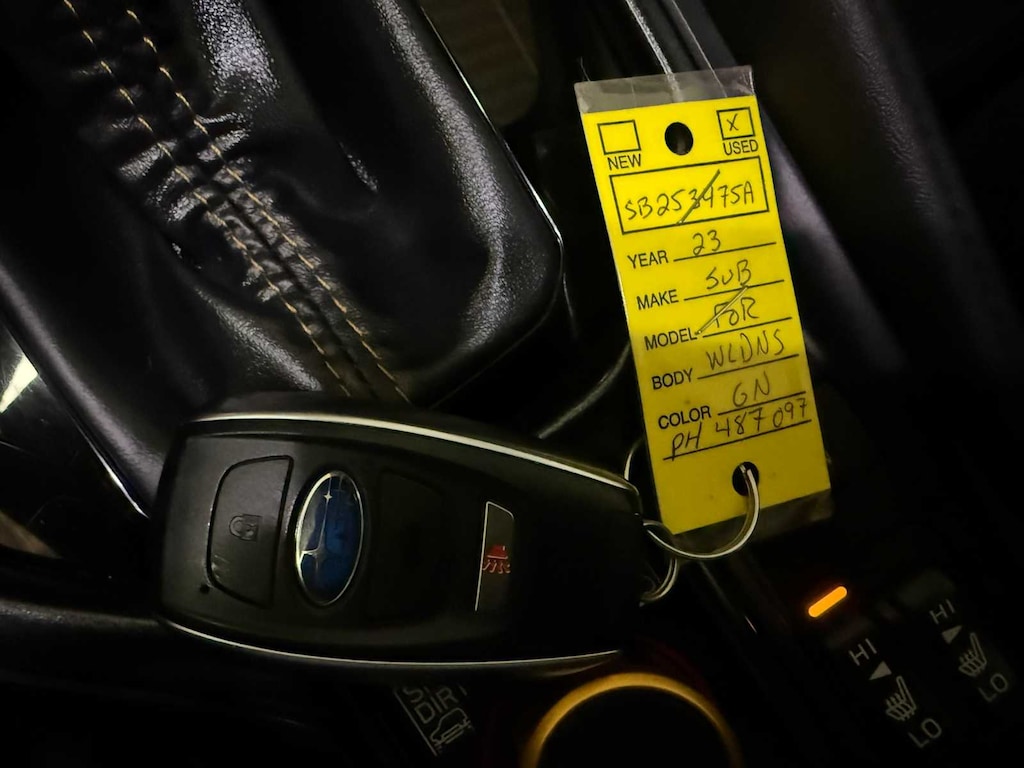 NEW X USED
SB253475A
YEAR 23
MAKE SUB
MODEL FOR
BODY WLDNS
COLOR GN
PH 487097
HI
LO
HI
LO
DIRT